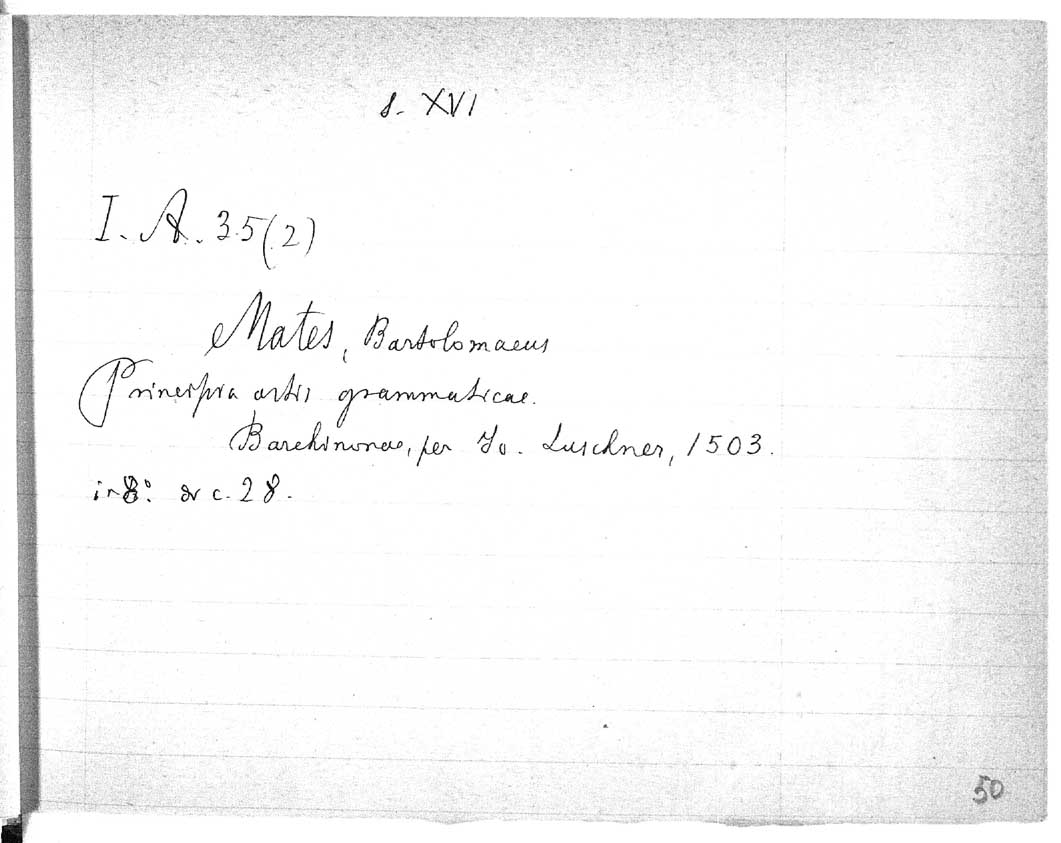 s. XVI
I. A. 35(2)
Mates, Bartolomaeus
Principia artis grammaticae.
Barchinonae, per Jo. Luschner, 1503.
in 8º. di c. 28.
50